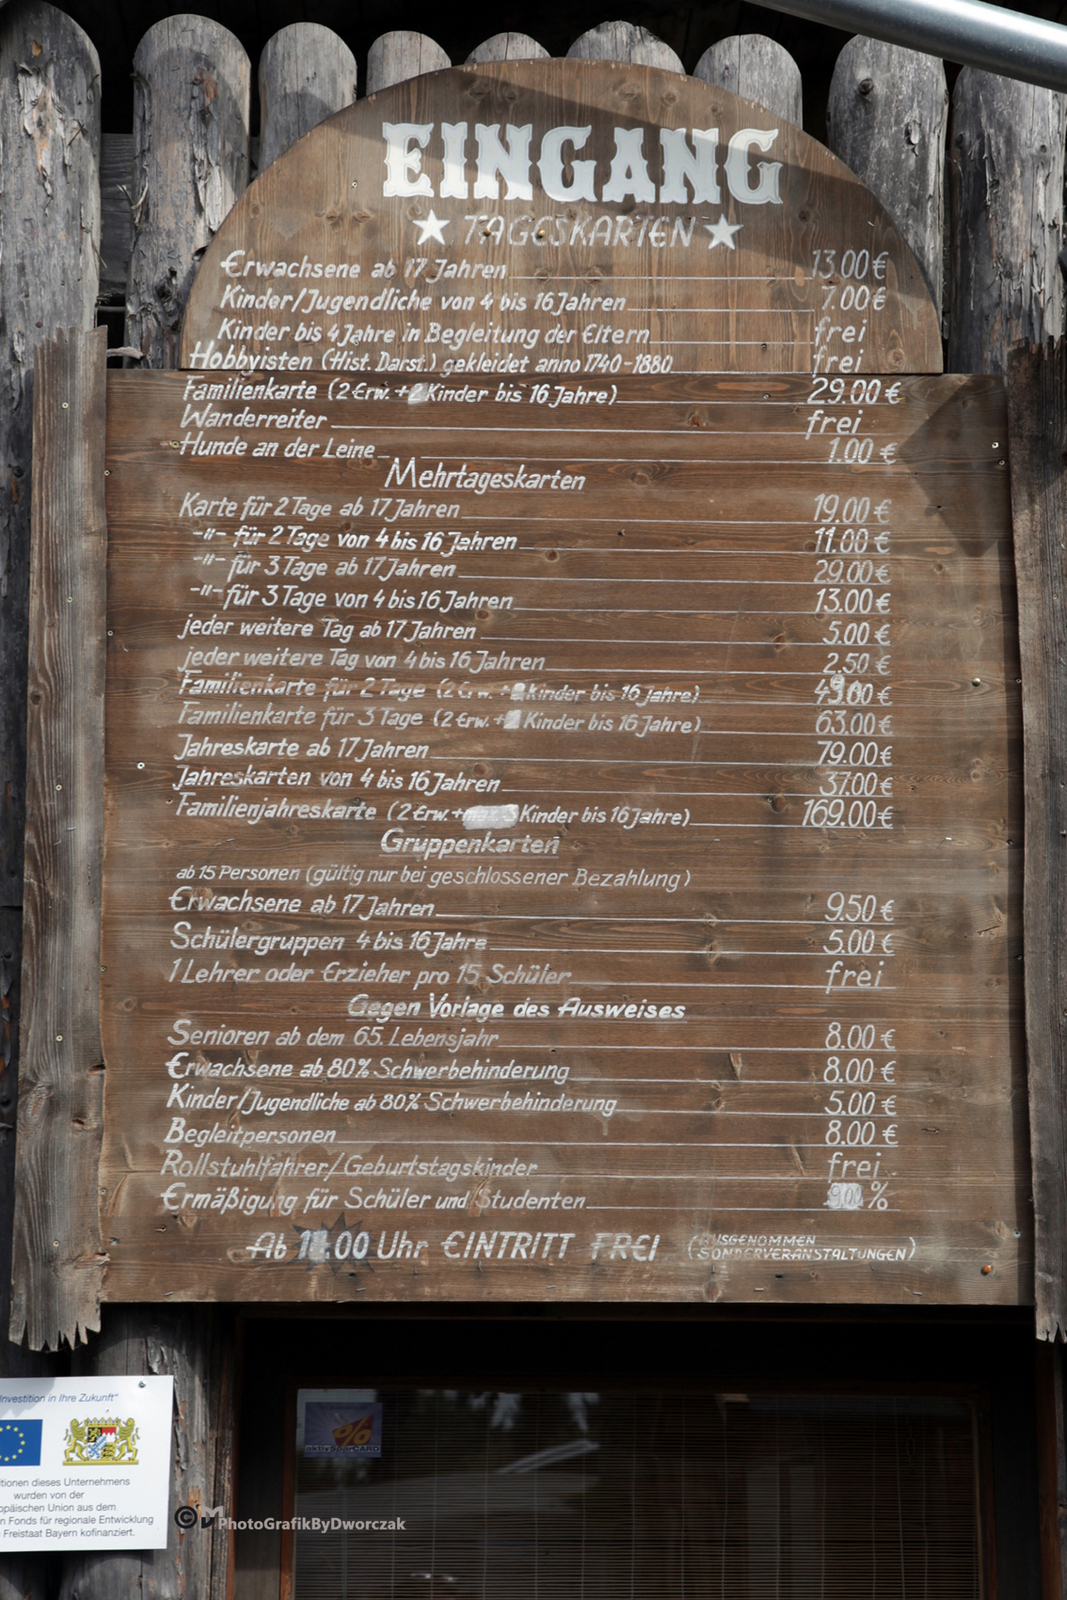 EINGANG
★ TAGESKARTEN ★
Erwachsene ab 17 Jahren 13.00 €
Kinder/Jugendliche von 4 bis 16 Jahren 7.00 €
Kinder bis 4 Jahre in Begleitung der Eltern frei
Hobbyisten (Hist. Darst.) gekleidet anno 1740-1880 frei
Familienkarte (2 Erw. + 2 Kinder bis 16 Jahre) 29.00 €
Wanderreiter frei
Hunde an der Leine 1.00 €
Mehrtageskarten
Karte für 2 Tage ab 17 Jahren 19.00 €
-"- für 2 Tage von 4 bis 16 Jahren 11.00 €
-"- für 3 Tage ab 17 Jahren 29.00 €
-"- für 3 Tage von 4 bis 16 Jahren 13.00 €
jeder weitere Tag ab 17 Jahren 5.00 €
jeder weitere Tag von 4 bis 16 Jahren 2.50 €
Familienkarte für 2 Tage (2 Erw. + 2 Kinder bis 16 Jahre) 49.00 €
Familienkarte für 3 Tage (2 Erw. + Kinder bis 16 Jahre) 63.00 €
Jahreskarte ab 17 Jahren 79.00 €
Jahreskarten von 4 bis 16 Jahren 37.00 €
Familienjahreskarte (2 Erw. + Kinder bis 16 Jahre) 169.00 €
Gruppenkarten
ab 15 Personen (gültig nur bei geschlossener Bezahlung)
Erwachsene ab 17 Jahren 9.50 €
Schülergruppen 4 bis 16 Jahre 5.00 €
1 Lehrer oder Erzieher pro 15 Schüler frei
Gegen Vorlage des Ausweises
Senioren ab dem 65. Lebensjahr 8.00 €
Erwachsene ab 80% Schwerbehinderung 8.00 €
Kinder/Jugendliche ab 80% Schwerbehinderung 5.00 €
Begleitpersonen 8.00 €
Rollstuhlfahrer/Geburtstagskinder frei
Ermäßigung für Schüler und Studenten %
Ab .00 Uhr EINTRITT FREI (AUSGENOMMEN
SONDERVERANSTALTUNGEN)
Investition in Ihre Zukunft"
tionen dieses Unternehmens
wurden von der
opäischen Union aus dem
n Fonds für regionale Entwicklung
Freistaat Bayern kofinanziert.
%
© PhotoGrafikByDworczak